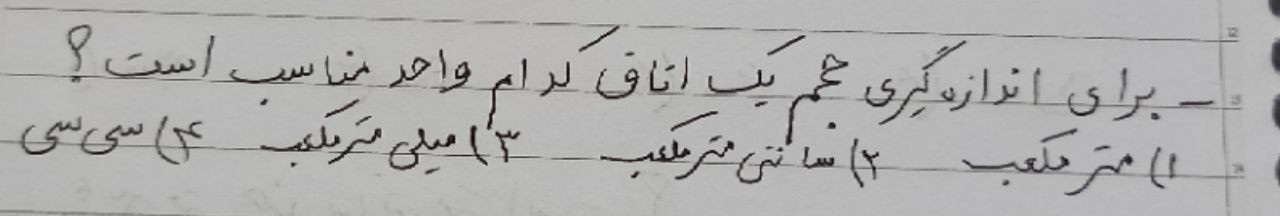 - برای اندازه‌گیری حجم یک اتاق کدام واحد مناسب است؟
۱) متر مکعب ۲) سانتی متر مکعب ۳) میلی متر مکعب ۴) سی سی